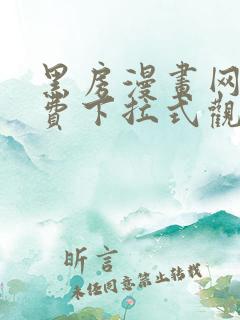 黑房漫畫网
費下拉式觀
昕言
未经同意禁止转载